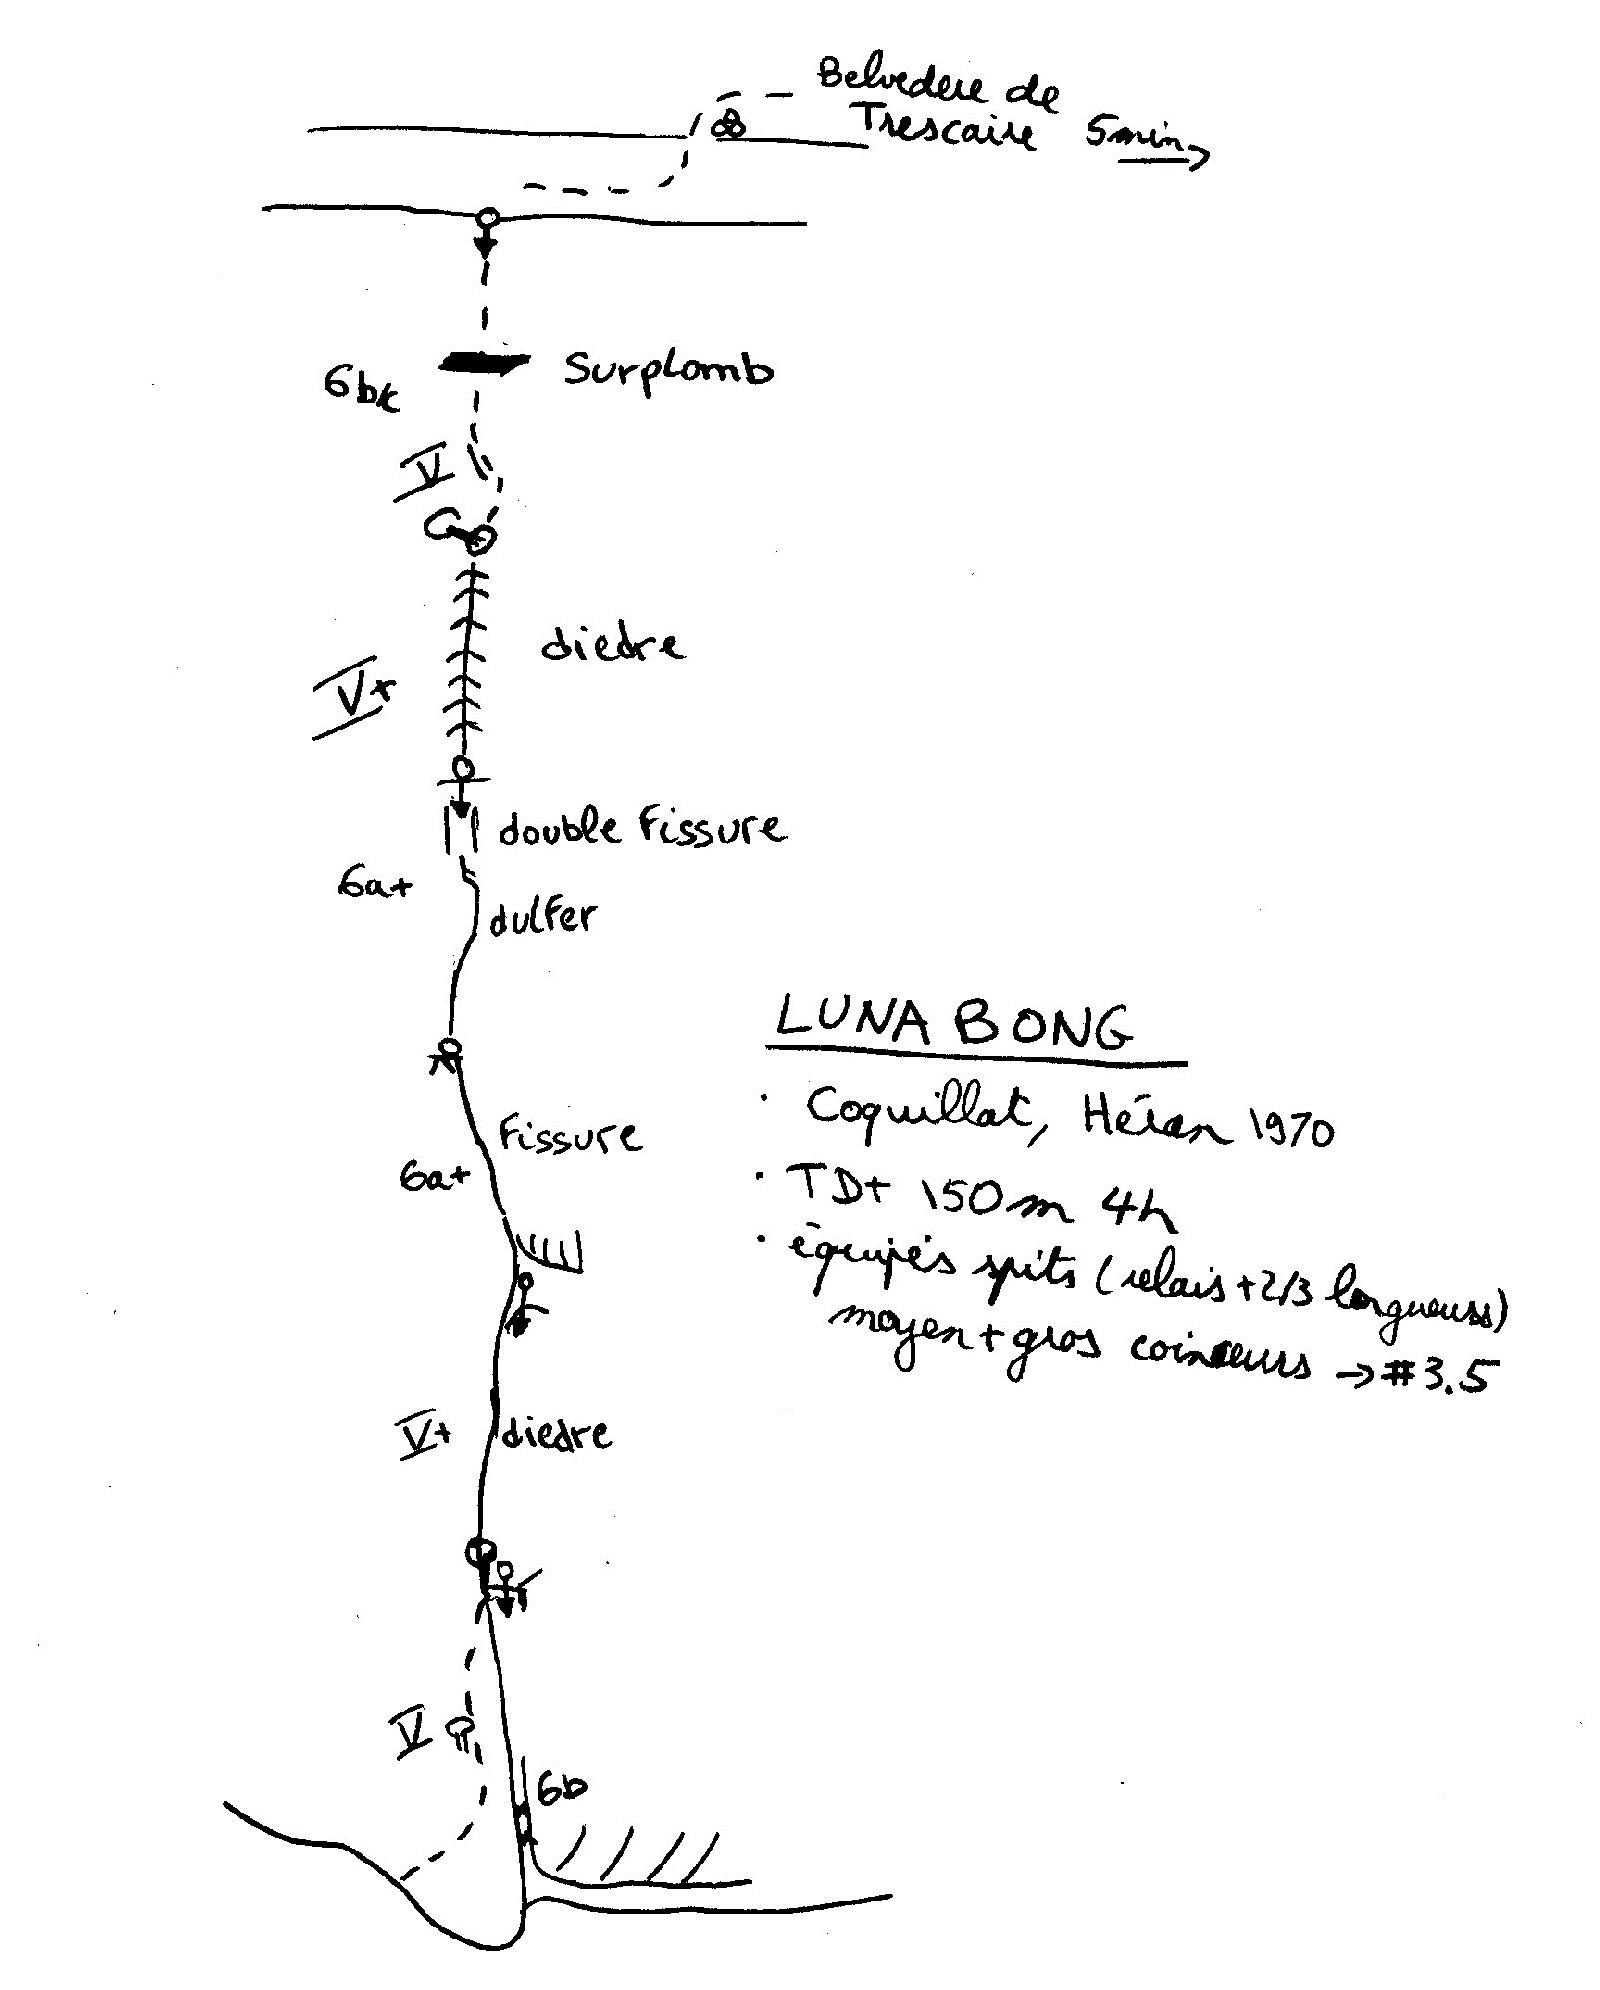 Belvedere de
Trescaire 5min
Surplomb
6b/c
V
diedre
V+
double fissure
6a+
dulfer
LUNA BONG
· Coquillat, Héran 1970
fissure
6a+
· TD+ 150m 4h
· équipés spits (relais + 2/3 longueurs)
moyen + gros coinceurs → #3.5
V+
diedre
V
6b